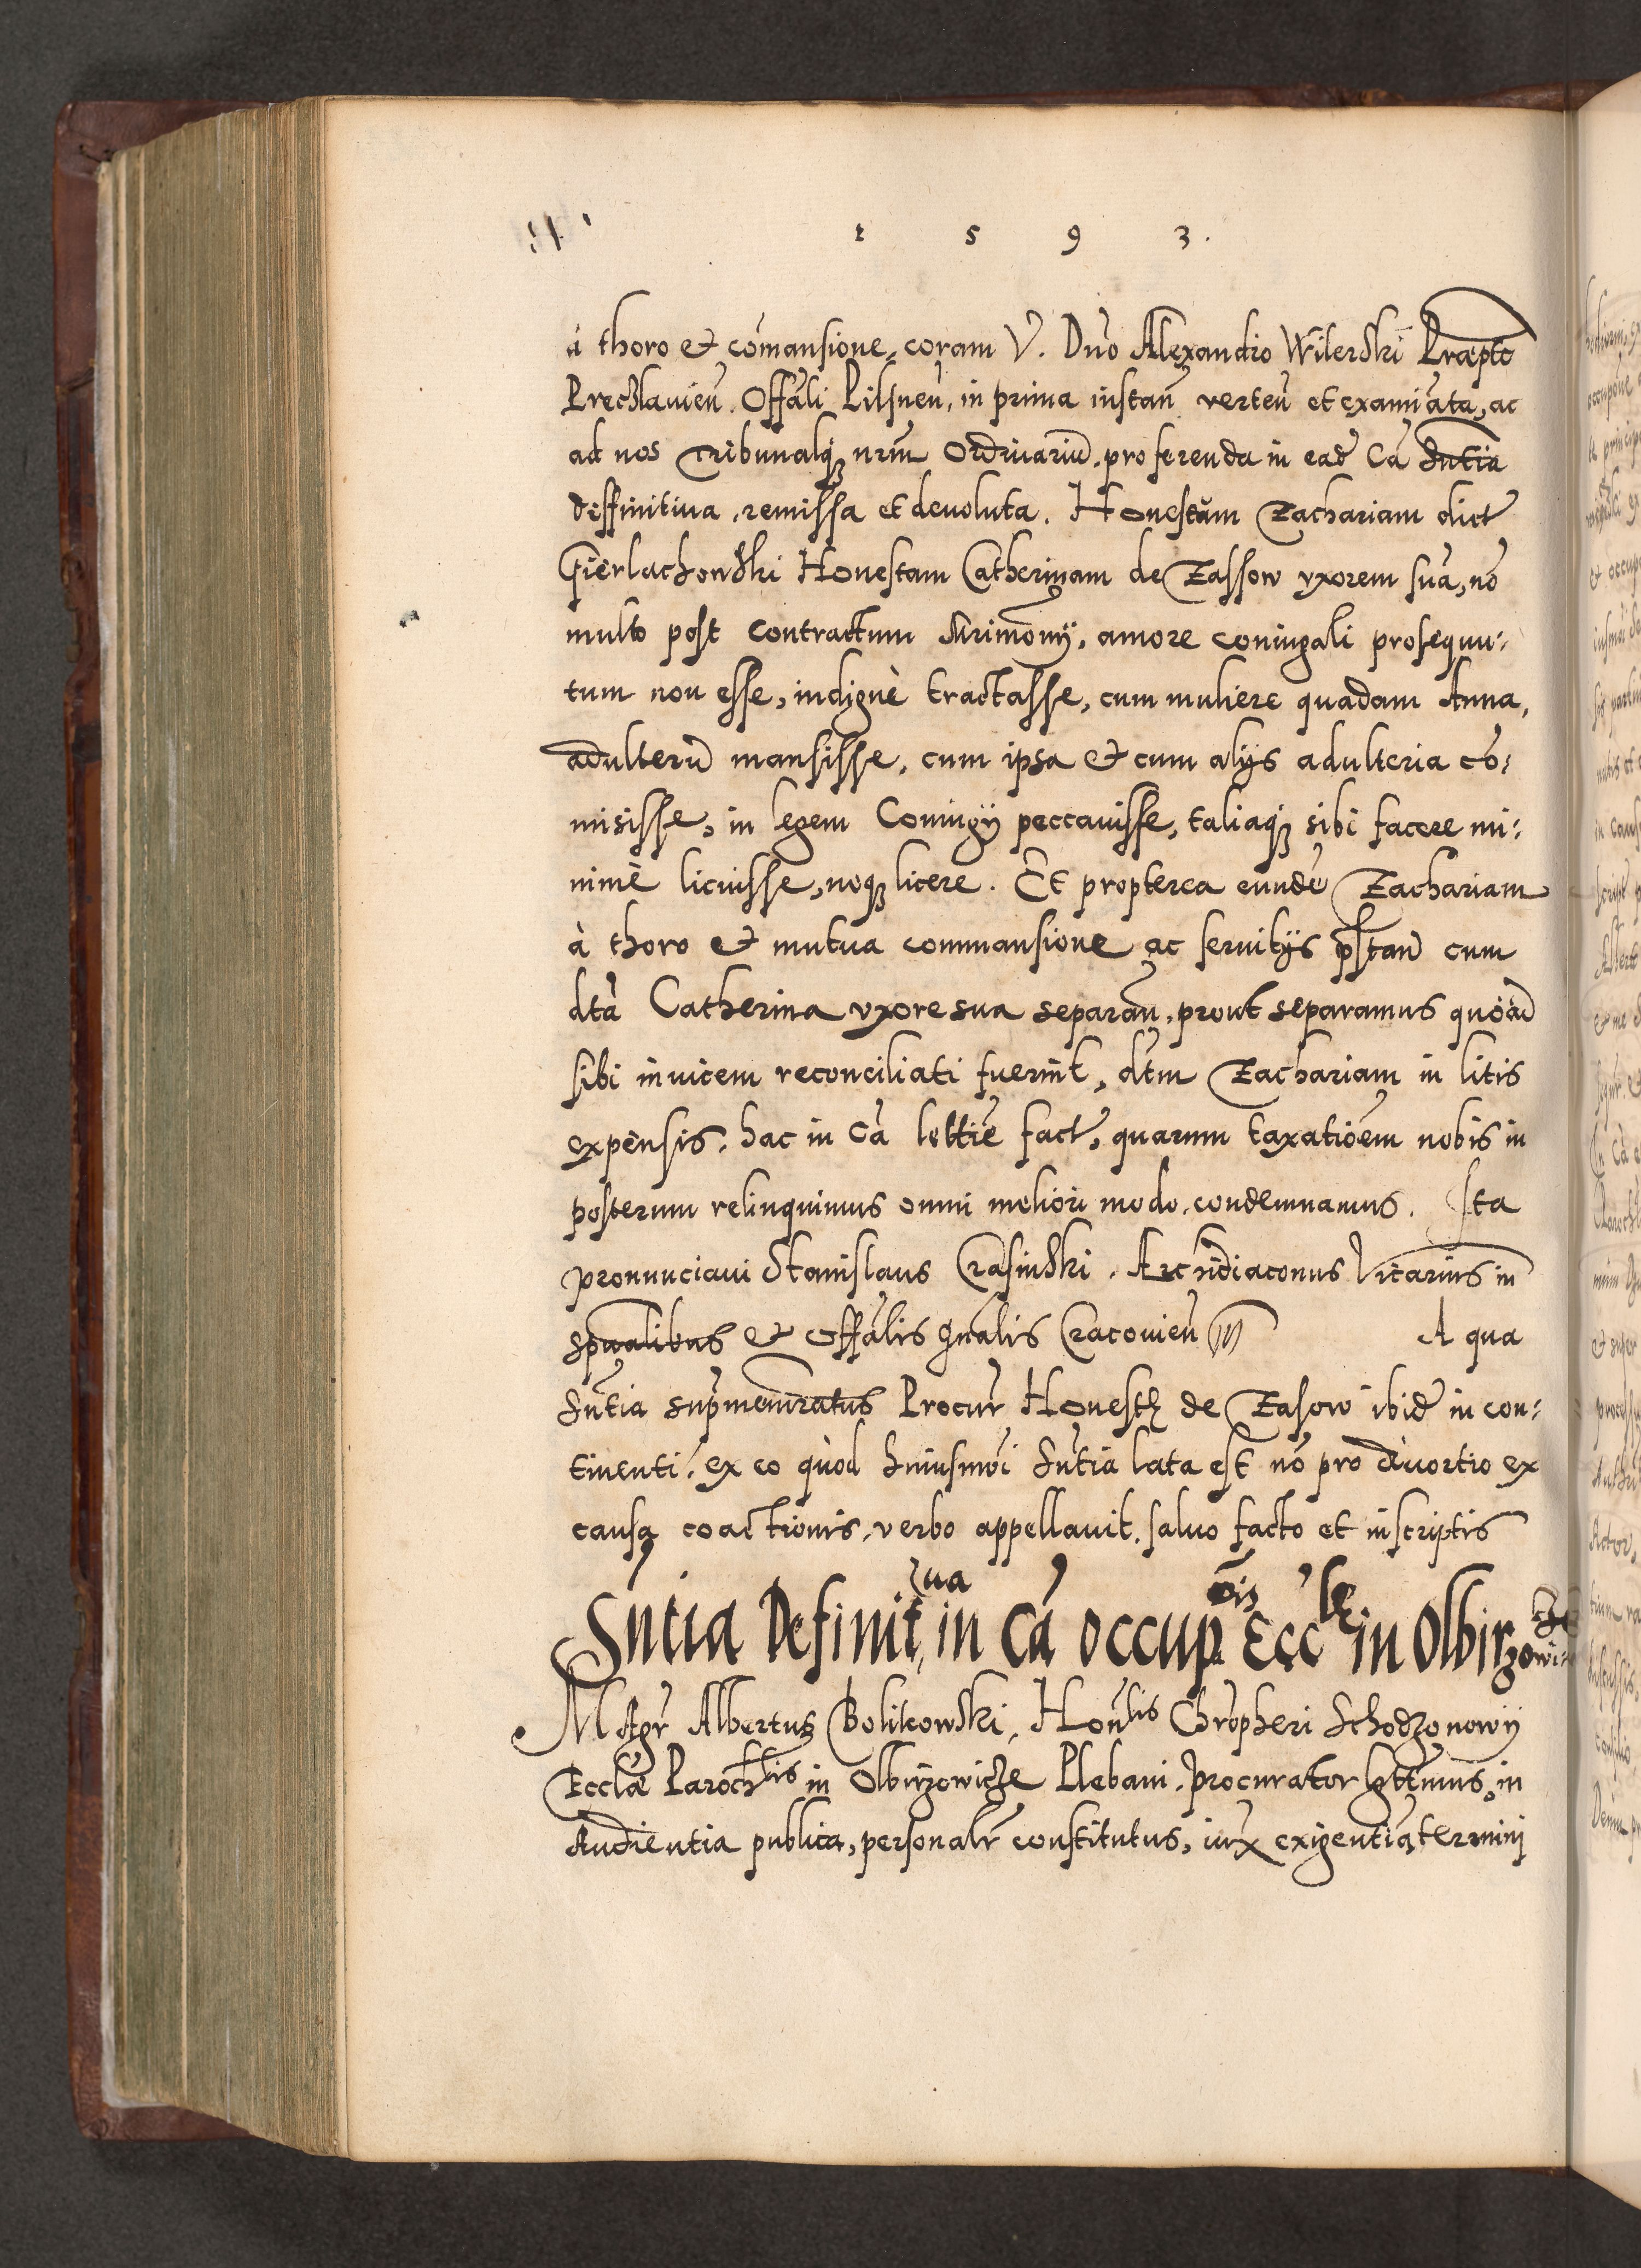 1 5 9 3.
à thoro et com̃ansione, coram V. Dn̄o Alexandro Wilerski Præpto
Preclavieñ. Offāli Pilsneñ, in prima instañ verteñ et examiāta, ac
ad nos Tribunalq; nr̄m Ordinariū proferenda in eadē Cā Sn̄tia
deffinitiua, remissa et deuoluta. Honestum Zachariam dict
Gierlachowski Honestam Catherinam de Zassow vxorem suā, nō
multo post contractum Mrimōnij, amore coniugali prosequu:
tum non esse, indignè tractasse, cum muliere quadam Anna,
adulterū mansisse, cum ipsa et cum alijs adulteria cō:
misisse, in legem Coniugij peccauisse, taliaq; sibi facere mi:
nimè licuisse, noq; licere. Et propterea eundē Zachariam
à thoro et mutua commansione ac seruitijs pstand cum
dtā Catherina vxore sua separañ, prout separamus quoad
sibi inuicem reconciliati fuerint, dtm Zachariam in litis
expensis, hac in Cā lettie fact, quarum taxatiōem nobis in
posterum relinquimus omni meliori modo condemnamus. Ita
pronunciaui Stanislaus Crasinski, Archidiaconus Vicarius in
spūalibus et Offālis gnālis Cracouieñ A qua
Sn̄tia supmemōratus Procur Honestæ de Zasow ibid in con:
tinenti, ex eo quòd huiusmōi Sn̄tia lata est nō pro diuortio ex
causa coactionis, verbo appellauit, saluo facto et inscriptis
Sn̄tia Definitiua in Cā occupōis Eccłe in Olbirzowicze
Magr Albertus Bolikowski, Honlis Chrōpheri Schodzonowy
Ecclæ Parochlis in Olbirzowicze Plebani, procurator lgtt̄imus, in
Audientia publica, personalr constitutus, iux exigentiā termini